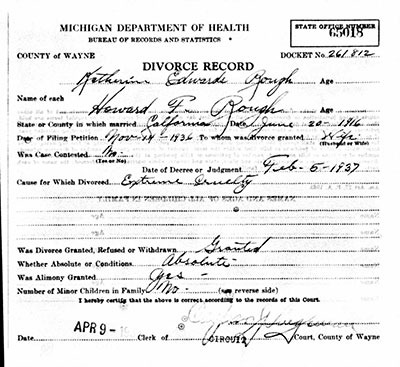 MICHIGAN DEPARTMENT OF HEALTH
BUREAU OF RECORDS AND STATISTICS
STATE OFFICE NUMBER
65018
COUNTY OF WAYNE
DOCKET No. 261812
DIVORCE RECORD
Katherine Edwards Rough Age
Name of each
Howard F. Rough Age
State or County in which married California Date June 20-1916
Date of Filing Petition Nov 24-1936 To whom was divorce granted Wife
(Husband or Wife)
Was Case Contested No
(Yes or No)
Date of Decree or Judgment Feb-5-1937
Cause for Which Divorced Extreme Cruelty
Was Divorce Granted, Refused or Withdrawn Granted
Whether Absolute or Conditions Absolute
Was Alimony Granted Yes -
Number of Minor Children in Family No- (see reverse side)
I hereby certify that the above is correct according to the records of this Court.
Date APR 9 - Clerk of CIRCUIT Court, County of Wayne